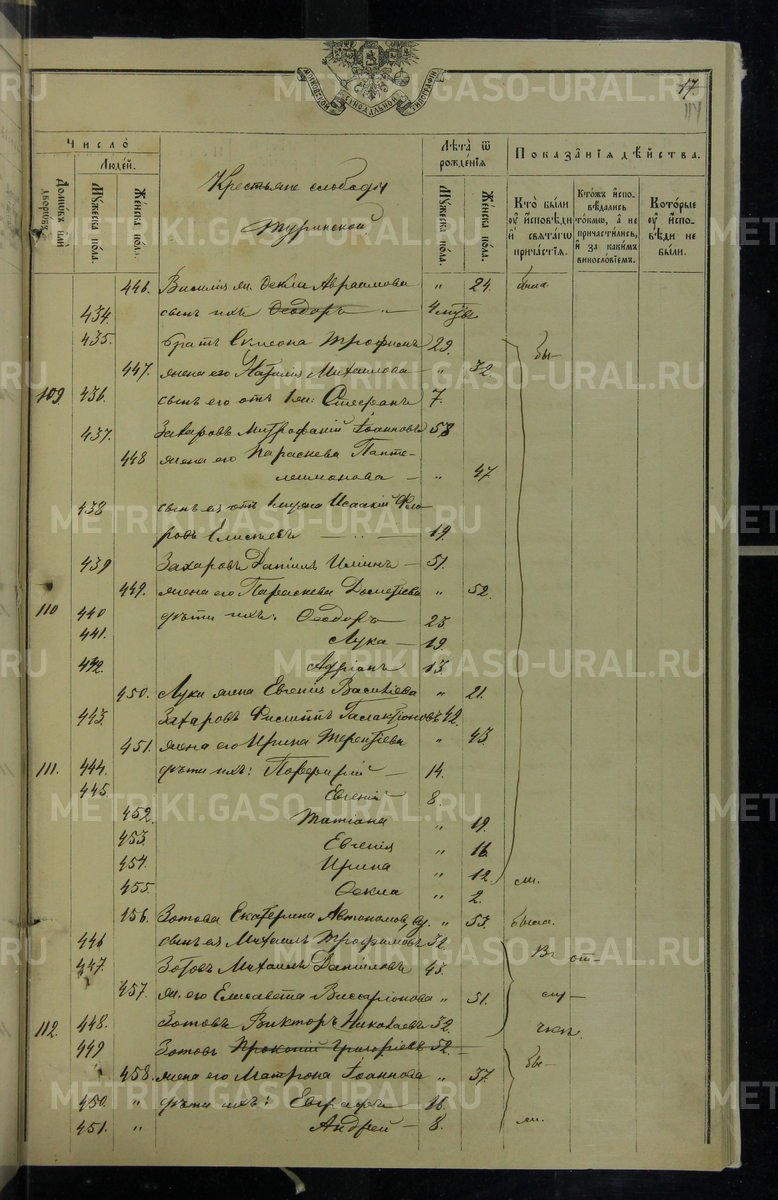 17.
114
МОСКОВСКОЙ СѴНОДАЛЬНОЙ ТѴПОГРАФІИ
Число̀
Людей.
Домѡвъ или дворѡвъ.
Мꙋжеска по́ла.
Же́нска по́ла.
Крестьяне слободы
Туринской.
Лѣ̑та ѿ рожде́нїѧ
Мꙋжеска по́ла.
Же́нска по́ла.
Показа̑нїѧ дѣ́йства.
Кто̀ бы́ли оу҆ и҆́сповѣди и҆ свѧта́гѡ прича́стїѧ.
Кто́жъ и҆сповѣ́дались то́кмѡ, а҆ не причасти́лись, и҆ за каки́мъ виносло́вїемъ.
Кото́рые оу҆ и҆́сповѣди не бы́ли.
446. Василія ж. Ѳекла Авраамова " 24. была
434. сынъ ихъ Ѳеодоръ — " —
435. братъ Симеона Трофимъ 29. бы-
447. жена его Наталія Михайлова — " 32
109 436. сынъ его отъ 1 ж: Стефанъ 7.
437. Захаровъ Митрофаній Іоанновъ 53
448 жена его Параскева Панте-
леимонова — " 47
438 сынъ ея отъ 1 мужа Исаакій Фло-
ровъ Елисѣевъ — 19.
439 Захаровъ Даніилъ Ильинъ — 51.
449. жена его Параскева Дометіева " 52.
110 440 дѣти ихъ: Ѳеодоръ 25
441. Лука — 19.
442. Адріанъ 13.
450. Луки жена Евгенія Василіева " 21.
443. Захаровъ Филиппъ Галактіоновъ 42.
451. жена его Ирина Терентіева " 43.
111. 444. дѣти ихъ: Порфирій — 14.
445. Евгеній 8.
452. Татіана " 19.
453. Евгенія " 16.
454. Ирина " 12.
ли.
455. Ѳекла " 2.
456. Зотова Екатерина Автономова, вд. " 53. была.
446 сынъ ея Михаилъ Трофимовъ 32.
447. Зотовъ Михаилъ Даниловъ 45. Въ от-
457. ж. его Елисавета Виссаріонова " 51. луч-
112. 448. Зотовъ Викторъ Николаевъ 52.
449 Зотовъ Прокопій Григоріевъ 52. —
458. жена его Матрона Іоаннова " 37. бы-
450. " дѣти ихъ: Евграфъ 16.
451. " Андрей — 8. ли.
METRIKI.GASO-URAL.RU